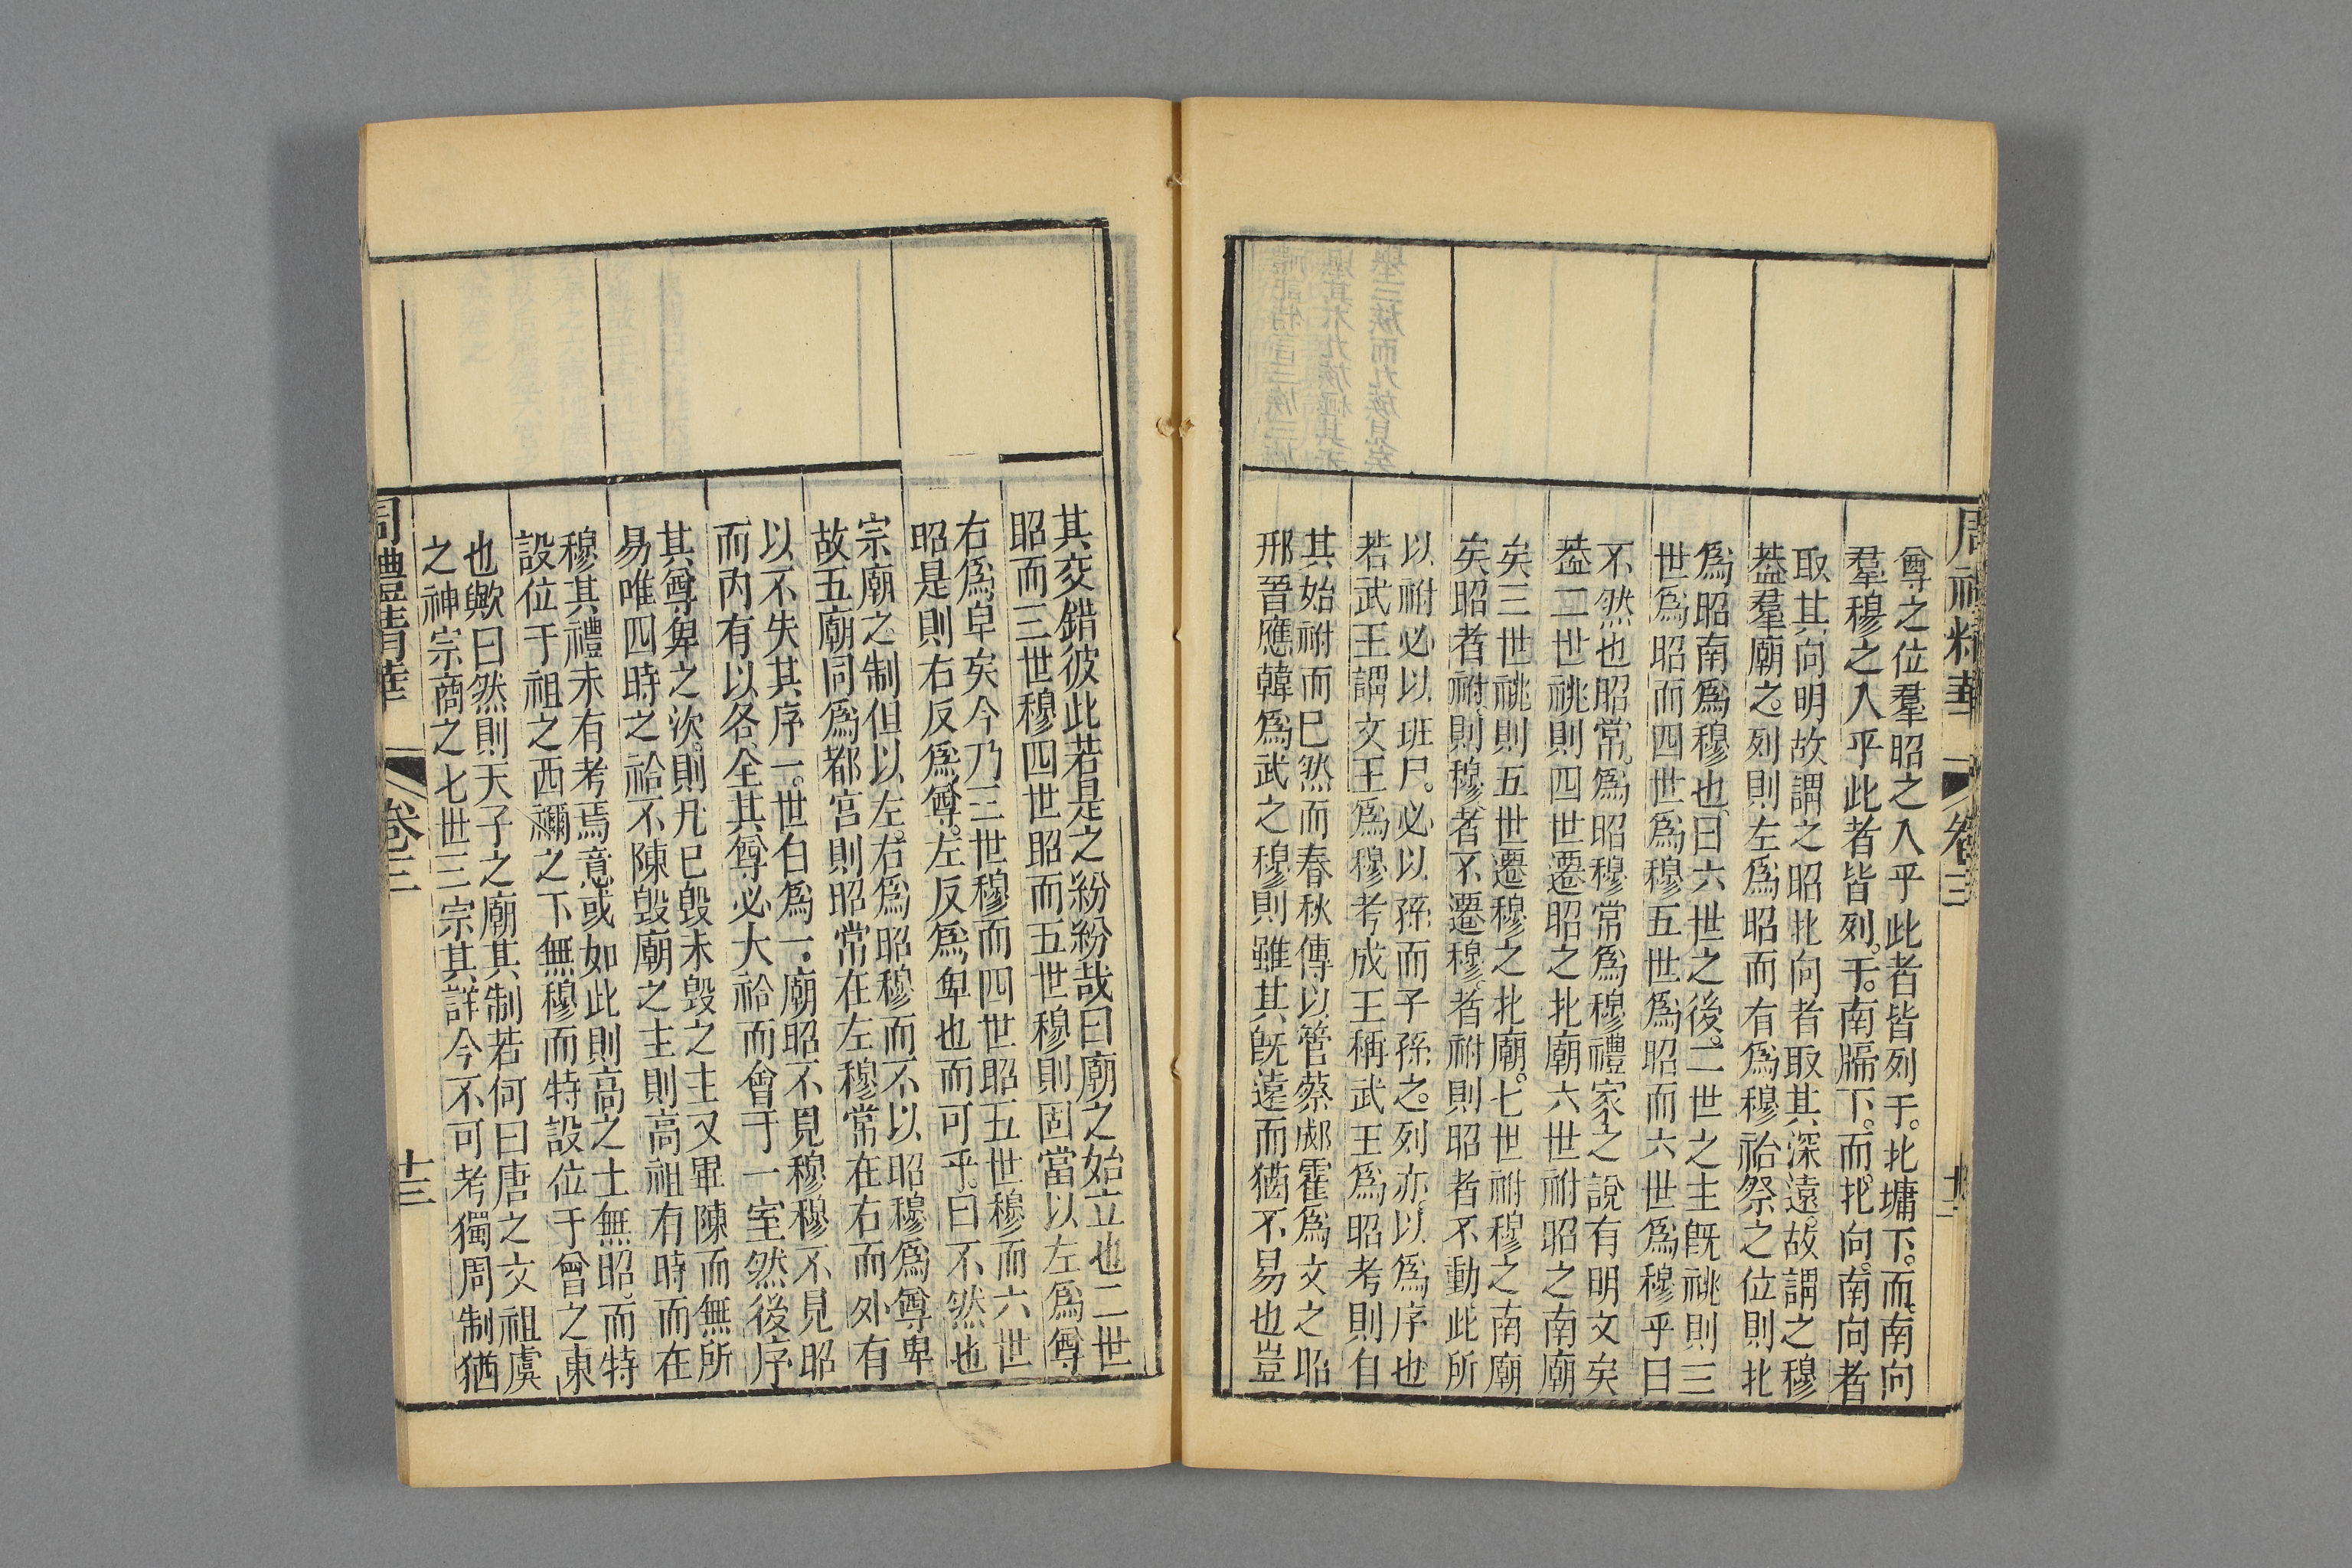 周禮精華
卷三
十二
尊之位羣昭之入乎此者皆列于北墉下而南向
羣穆之入乎此者皆列于南牖下而北向南向者
取其向明故謂之昭北向者取其深遠故謂之穆
葢羣廟之列則左爲昭而右爲穆祫祭之位則北
爲昭南爲穆也曰六世之後二世之主旣祧則三
世爲昭而四世爲穆五世爲昭而六世爲穆乎曰
不然也昭常爲昭穆常爲穆禮家之說有明文矣
葢二世祧則四世遷昭之北廟六世祔昭之南廟
矣三世祧則五世遷穆之北廟七世祔穆之南廟
矣昭者祔則穆者不遷穆者祔則昭者不動此所
以祔必以班尸必以孫而子孫之列亦以爲序也
若武王謂文王爲穆考成王稱武王爲昭考則自
其始祔而已然而春秋傳以管蔡郕霍爲文之昭
邢晉應韓爲武之穆則雖其旣遠而猶不易也豈
其交錯彼此若是之紛紛哉曰廟之始立也二世
昭而三世穆四世昭而五世穆則固當以左爲尊
右爲卑矣今乃三世穆而四世昭五世穆而六世
昭是則右反爲尊左反爲卑也而可乎曰不然也
宗廟之制但以左右爲昭穆而不以昭穆爲尊卑
故五廟同爲都宮則昭常在左穆常在右而外有
以不失其序一世自爲一廟昭不見穆穆不見昭
而內有以各全其尊必大祫而會于一室然後序
其尊卑之次則凡已毀未毀之主又畢陳而無所
易唯四時之祫不陳毀廟之主則高祖有時而在
穆其禮未有考焉意或如此則高之上無昭而特
設位于祖之西禰之下無穆而特設位于曾之東
也歟曰然則天子之廟其制若何曰唐之文祖虞
之神宗商之七世三宗其詳今不可考獨周制猶
周禮精華
卷三
十三